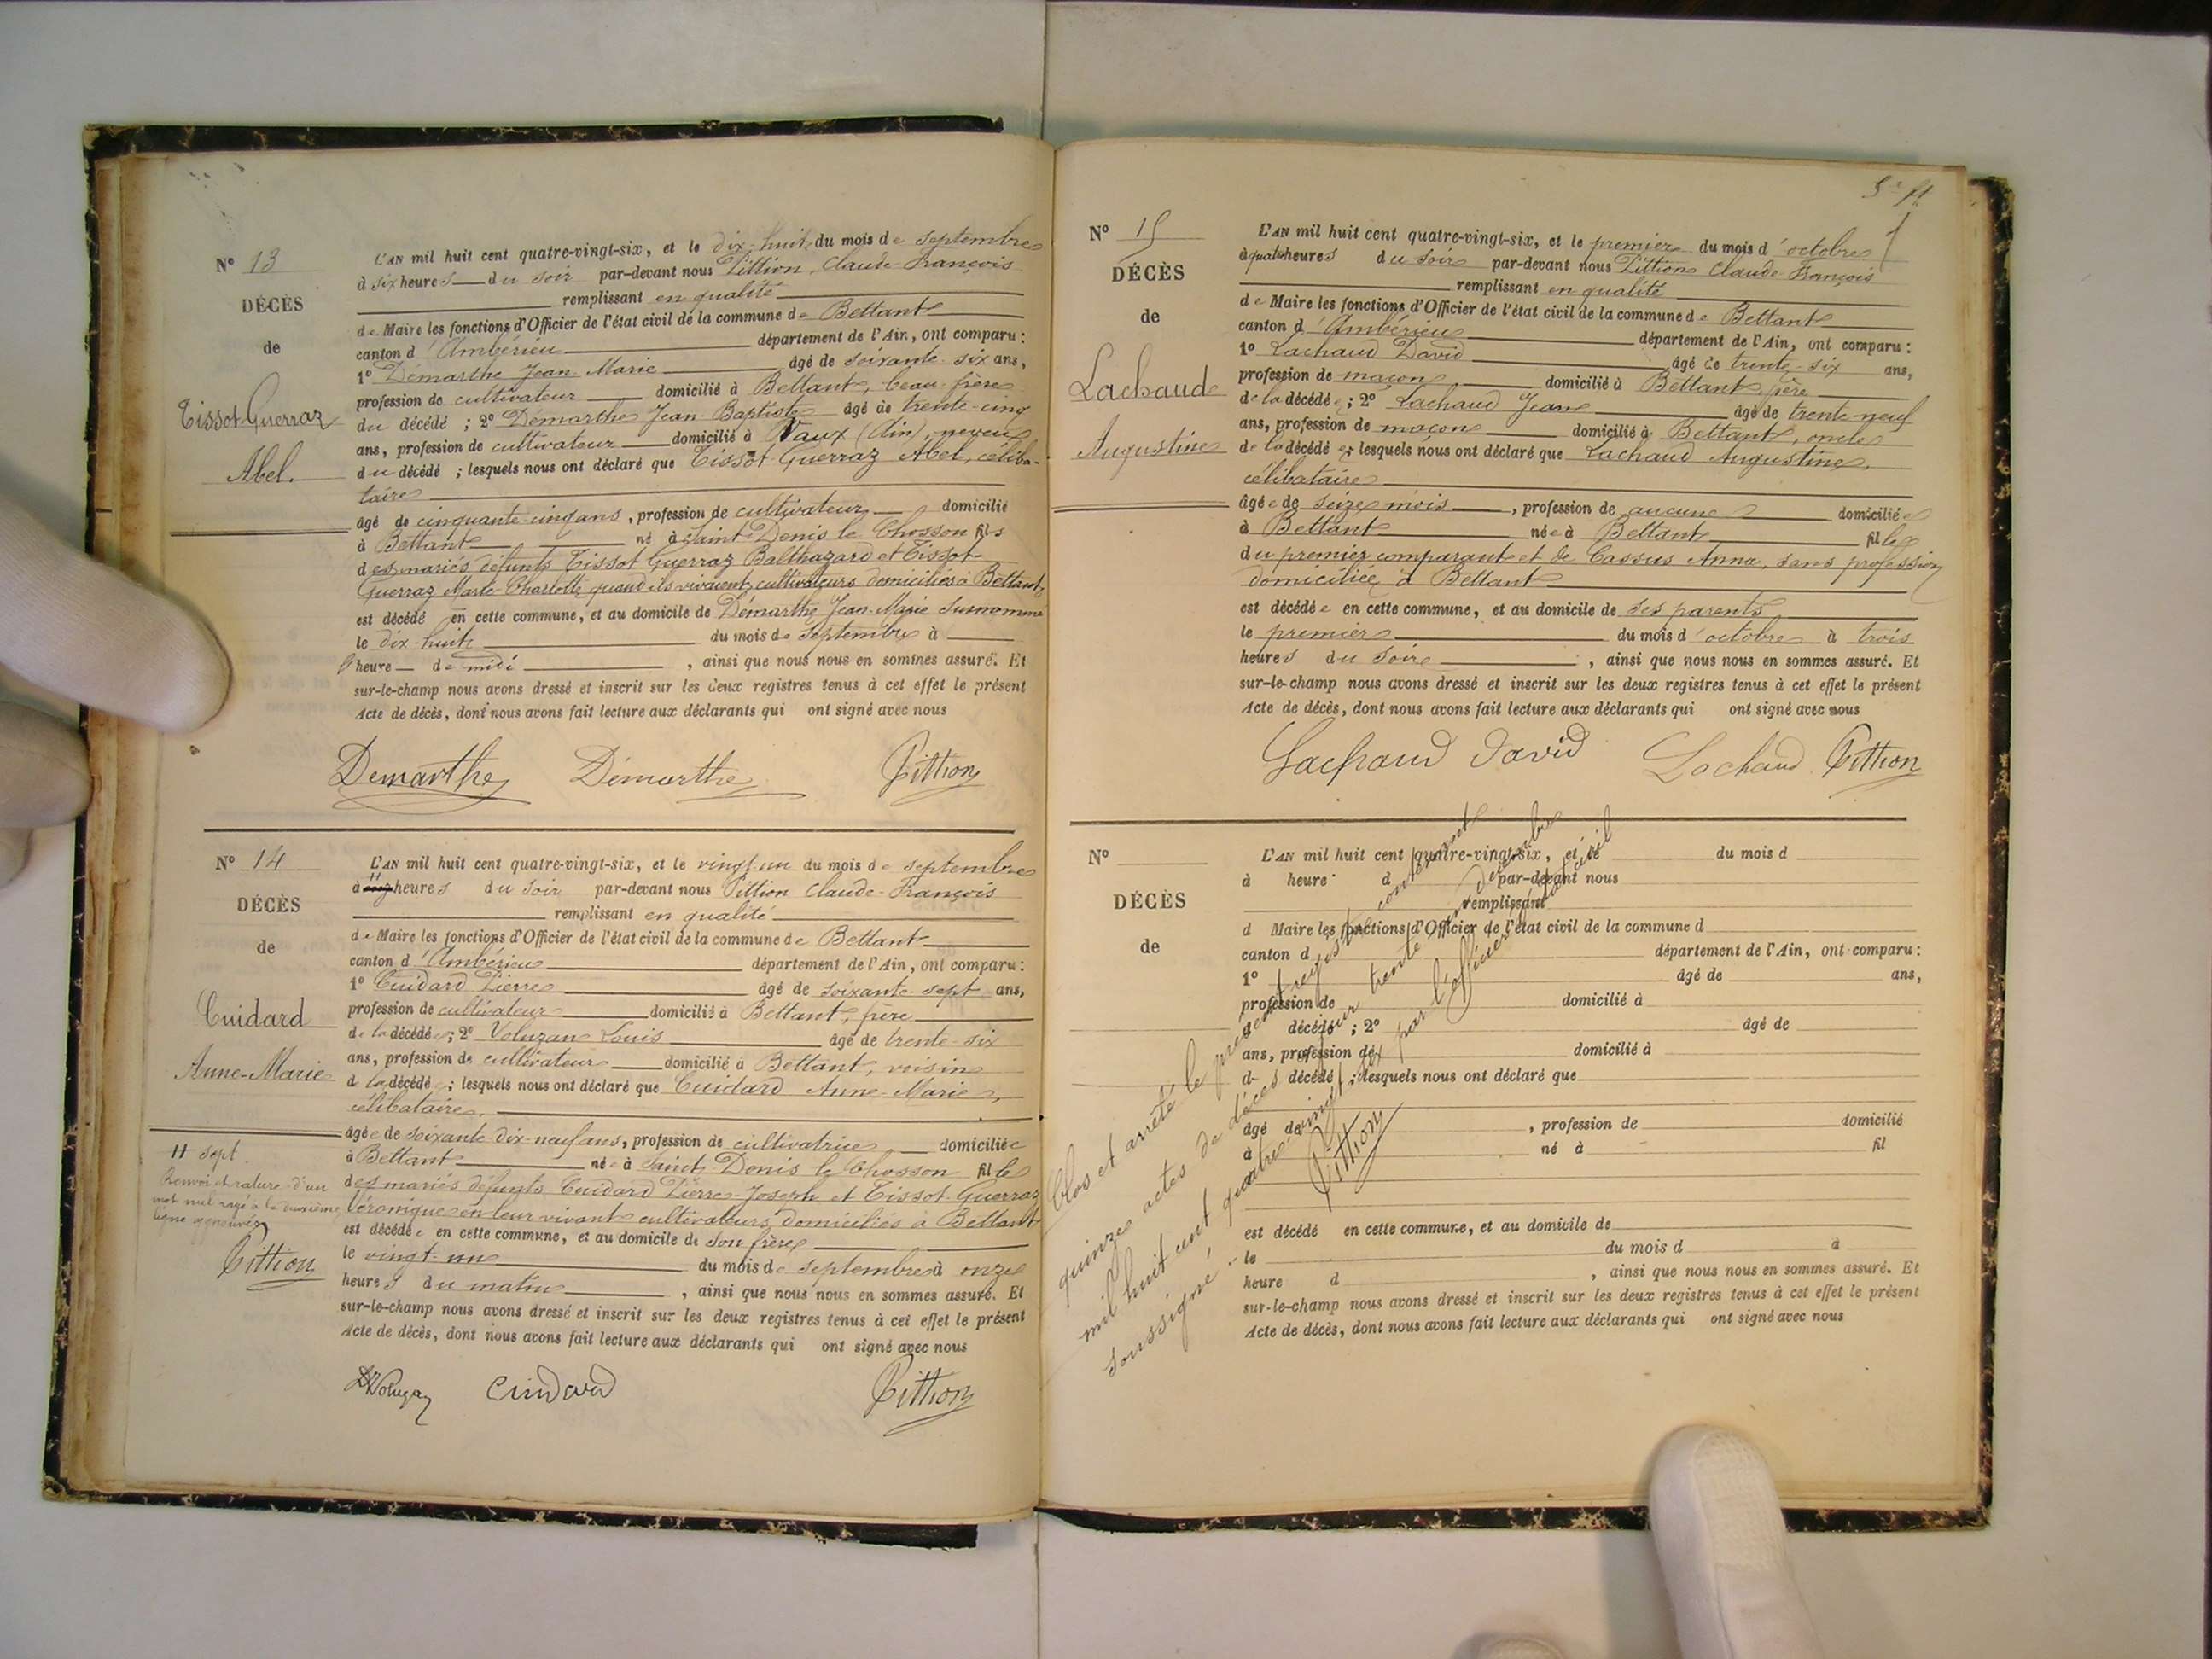 Nº 13
DÉCÈS
de
Tissot-Guerraz
Abel.
L'AN mil huit cent quatre-vingt-six, et le dix-huit du mois de septembre
à six heures du soir par-devant nous Pittion, Claude-François
remplissant en qualité
de Maire les fonctions d'Officier de l'état civil de la commune de Bettant
canton d'Ambérieu département de l'Ain, ont comparu :
1º Démarthe Jean-Marie âgé de soixante-six ans,
profession de cultivateur domicilié à Bettant, beau-frère
du décédé ; 2º Démarthe Jean-Baptiste âgé de trente-cinq
ans, profession de cultivateur domicilié à Vaux (Ain), neveu
du décédé ; lesquels nous ont déclaré que Tissot-Guerraz Abel, céliba-
taire
âgé de cinquante-cinq ans, profession de cultivateur domicilié
à Bettant né à Saint-Denis le Chosson fils
des mariés défunts Tissot Guerraz Balthazard et Tissot
Guerraz Marie-Charlotte quand ils vivaient cultivateurs domiciliés à Bettant,
est décédé en cette commune, et au domicile de Démarthe Jean-Marie susnommé
le dix-huit du mois de septembre à
heure de midi , ainsi que nous nous en sommes assuré. Et
sur-le-champ nous avons dressé et inscrit sur les deux registres tenus à cet effet le présent
Acte de décès, dont nous avons fait lecture aux déclarants qui ont signé avec nous
Demarthe Démarthe Pittion
Nº 14
DÉCÈS
de
Cuidard
Anne-Marie
11 sept
Renvoi et rature d'un
mot nul rayé à la deuxième
ligne approuvés
Pittion
L'AN mil huit cent quatre-vingt-six, et le vingt-un du mois de septembre
à 11 heures du soir par-devant nous Pittion Claude-François
remplissant en qualité
de Maire les fonctions d'Officier de l'état civil de la commune de Bettant
canton d'Ambérieu département de l'Ain, ont comparu :
1º Cuidard Pierre âgé de soixante-sept ans,
profession de cultivateur domicilié à Bettant, frère
de la décédée ; 2º Voluzan Louis âgé de trente-six
ans, profession de cultivateur domicilié à Bettant, voisin
de la décédée ; lesquels nous ont déclaré que Cuidard Anne-Marie,
célibataire,
âgée de soixante-dix-neuf ans, profession de cultivatrice domiciliée
à Bettant née à Saint-Denis le Chosson fille
des mariés défunts Cuidard Pierre-Joseph et Tissot-Guerraz
Véronique en leur vivant cultivateurs, domiciliés à Bettant
est décédée en cette commune, et au domicile de son frère
le vingt-un du mois de septembre à onze
heures du matin , ainsi que nous nous en sommes assuré. Et
sur-le-champ nous avons dressé et inscrit sur les deux registres tenus à cet effet le présent
Acte de décès, dont nous avons fait lecture aux déclarants qui ont signé avec nous
Cuidard Pittion
Nº 15
DÉCÈS
de
Lachaud
Augustine
L'AN mil huit cent quatre-vingt-six, et le premier du mois d'octobre
à quatre heures du soir par-devant nous Pittion Claude-François
remplissant en qualité
de Maire les fonctions d'Officier de l'état civil de la commune de Bettant
canton d'Ambérieu département de l'Ain, ont comparu :
1º Lachaud David âgé de trente-six ans,
profession de maçon domicilié à Bettant, père
de la décédée ; 2º Lachaud Jean âgé de trente-neuf
ans, profession de maçon domicilié à Bettant, oncle
de la décédée ; lesquels nous ont déclaré que Lachaud Augustine,
célibataire
âgée de seize mois, profession de aucune domiciliée
à Bettant née à Bettant fille
du premier comparant et de Cassus Anna, sans profession
domiciliée à Bettant
est décédée en cette commune, et au domicile de ses parents
le premier du mois d'octobre à trois
heures du soir , ainsi que nous nous en sommes assuré. Et
sur-le-champ nous avons dressé et inscrit sur les deux registres tenus à cet effet le présent
Acte de décès, dont nous avons fait lecture aux déclarants qui ont signé avec nous
Lachaud David Lachaud Pittion
Nº
DÉCÈS
de
L'AN mil huit cent quatre-vingt-six, et le du mois d
à heure d par-devant nous
remplissant
d Maire les fonctions d'Officier de l'état civil de la commune d
canton d département de l'Ain, ont comparu :
1º âgé de ans,
profession de domicilié à
d décédé ; 2º âgé de
ans, profession de domicilié à
d décédé ; lesquels nous ont déclaré que
âgé de , profession de domicilié
à né à fil
est décédé en cette commune, et au domicile de
le du mois d à
heure d , ainsi que nous nous en sommes assuré. Et
sur-le-champ nous avons dressé et inscrit sur les deux registres tenus à cet effet le présent
Acte de décès, dont nous avons fait lecture aux déclarants qui ont signé avec nous
Clos et arrêté le présent registre contenant
quinze actes de décès ce jour trente un décembre
mil huit cent quatre-vingt-six par l'officier de l'état civil
soussigné.
Pittion